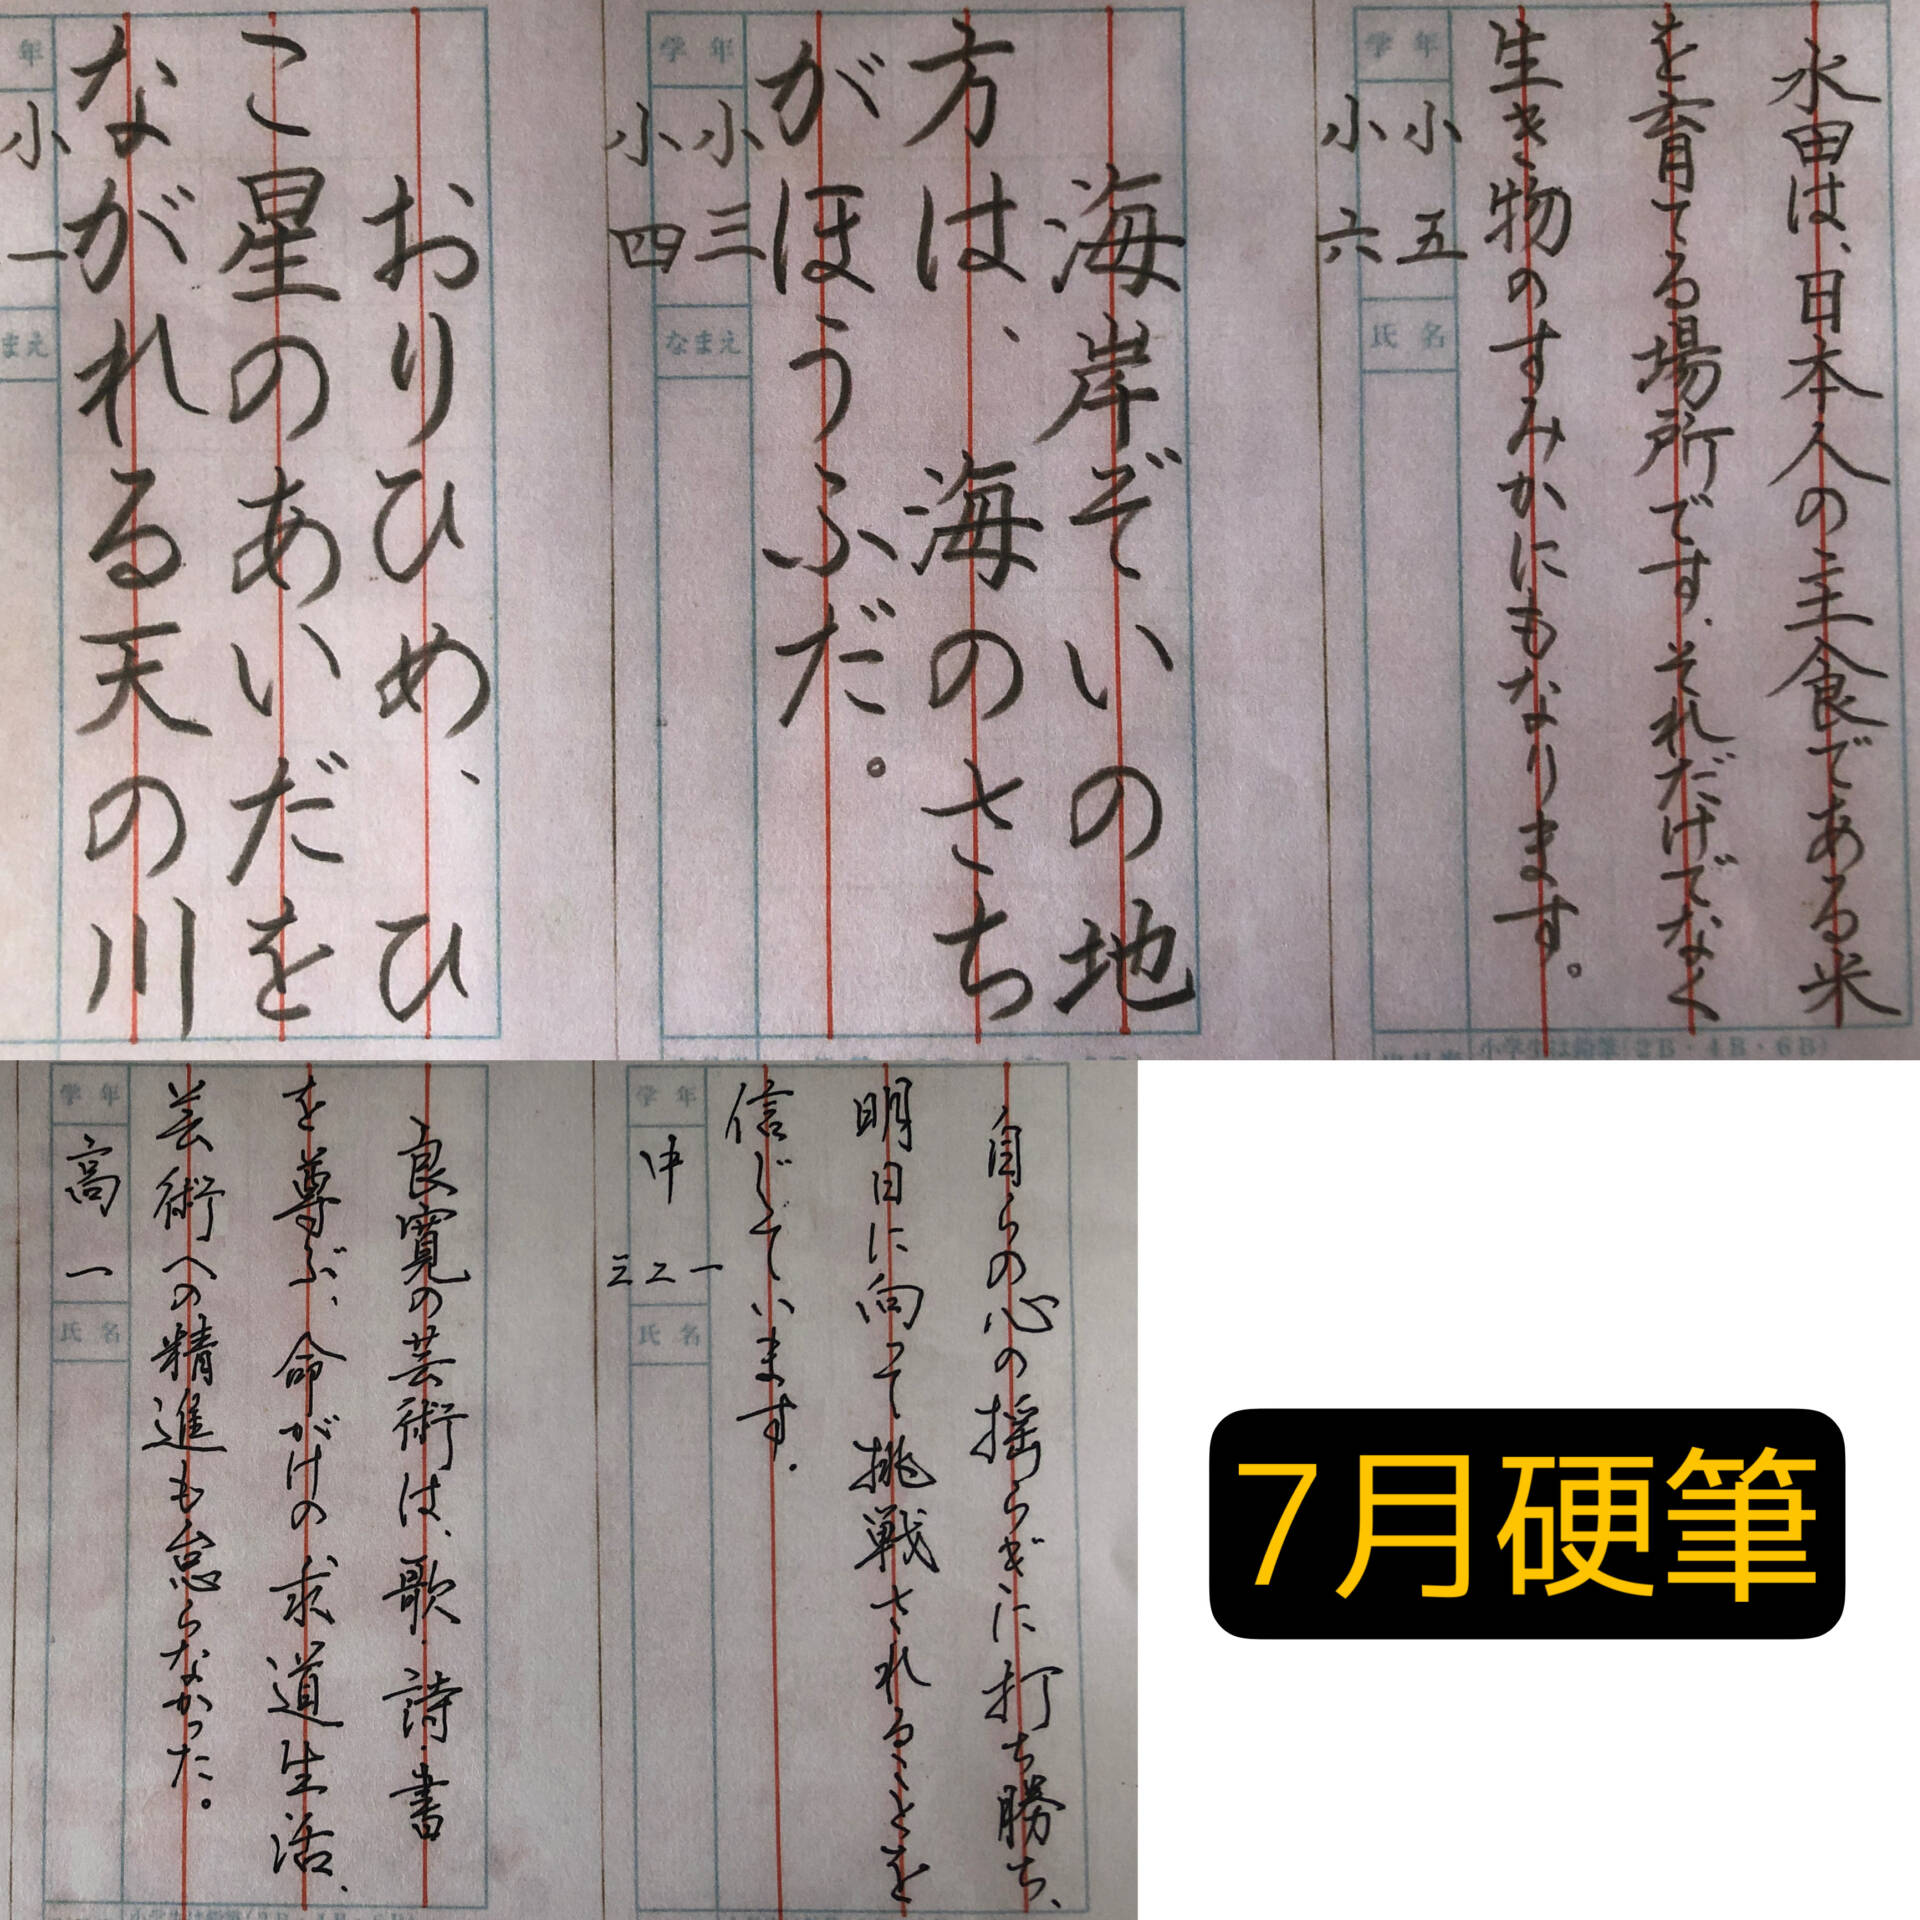 おりひめ、ひ
こ星のあいだを
ながれる天の川
年
小一
まえ
海岸ぞいの地
方は、海のさち
がほうふだ。
学年
小三
小四
なまえ
水田は、日本人の主食である米
を育てる場所です。それだけでなく
生き物のすみかにもなります。
学年
小五
小六
氏名
小学生は鉛筆(2B・4B・6B)
良寛の芸術は、歌・詩・書
を尊ぶ、命がけの求道生活、
芸術への精進も怠らなかった。
学年
高一
氏名
自らの心の揺らぎに打ち勝ち、
明日に向って挑戦されることを
信じています。
学年
中一二三
氏名
7月硬筆